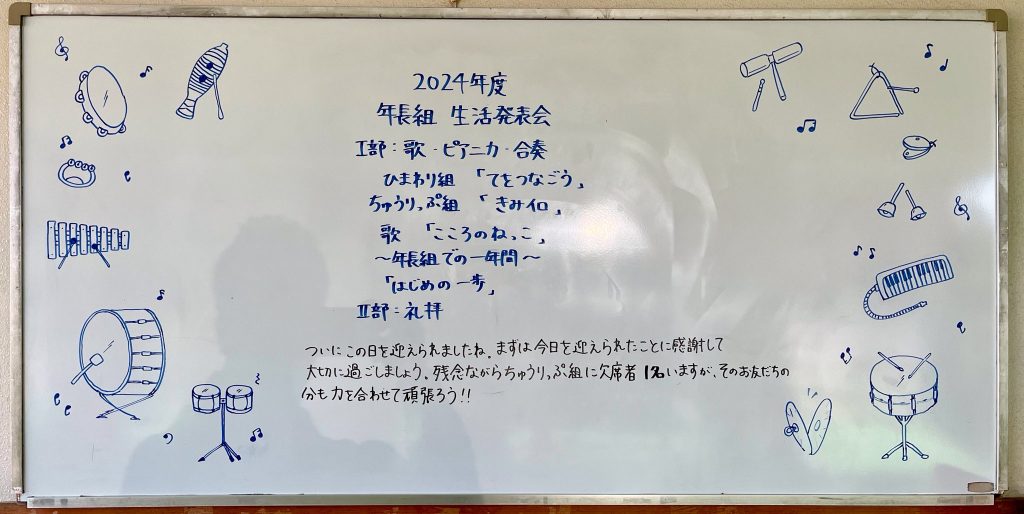 2024年度
年長組 生活発表会
I部：歌・ピアニカ・合奏
ひまわり組 「てをつなごう」
ちゅうりっぷ組 「きみイロ」
歌 「こころのねっこ」
～年長組での一年間～
「はじめの一歩」
II部：礼拝
ついにこの日を迎えられましたね。まずは今日を迎えられたことに感謝して
大切に過ごしましょう。残念ながらちゅうりっぷ組に欠席者1名いますが、そのお友だちの
分も力を合わせて頑張ろう!!